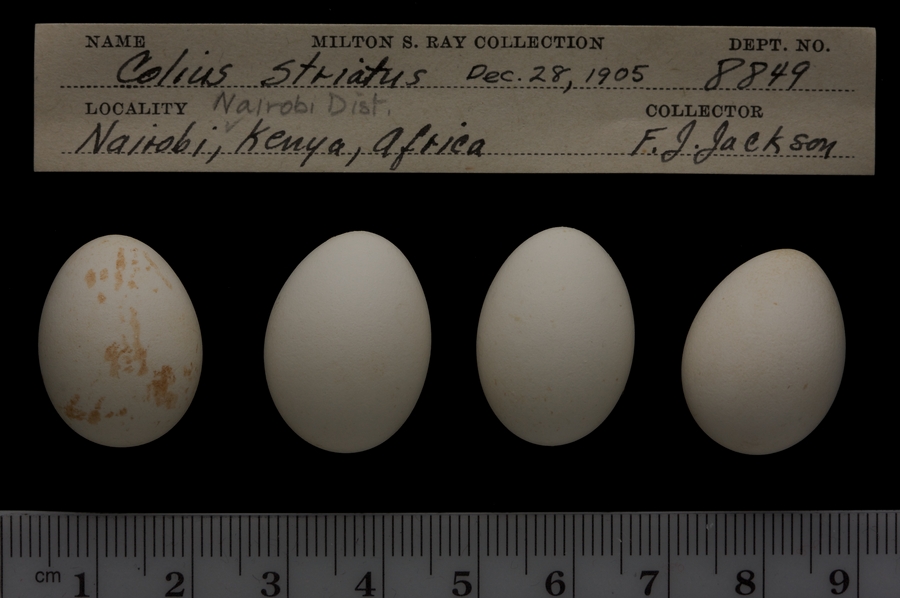 NAME MILTON S. RAY COLLECTION DEPT. NO.
Colius striatus Dec. 28, 1905 8849
LOCALITY Nairobi Dist. COLLECTOR
Nairobi, Kenya, Africa F. J. Jackson
cm 1 2 3 4 5 6 7 8 9